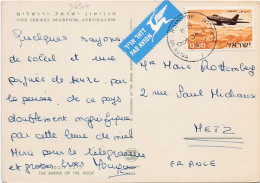 מוזיאון ישראל ירושלים
THE ISRAEL MUSEUM, JERUSALEM
Quelques rayons
de soleil et une
pensée de
pensée, de ce pays
doublement magnifique
par cette lune de miel
Merci pour le télégramme
et grosses bises
THE SHRINE OF THE BOOK
דואר אויר
PAR AVION
0.30
ישראל
ISRAEL
Mr Marc Rottemberg
2 rue Paul Michaux
METZ
FRANCE